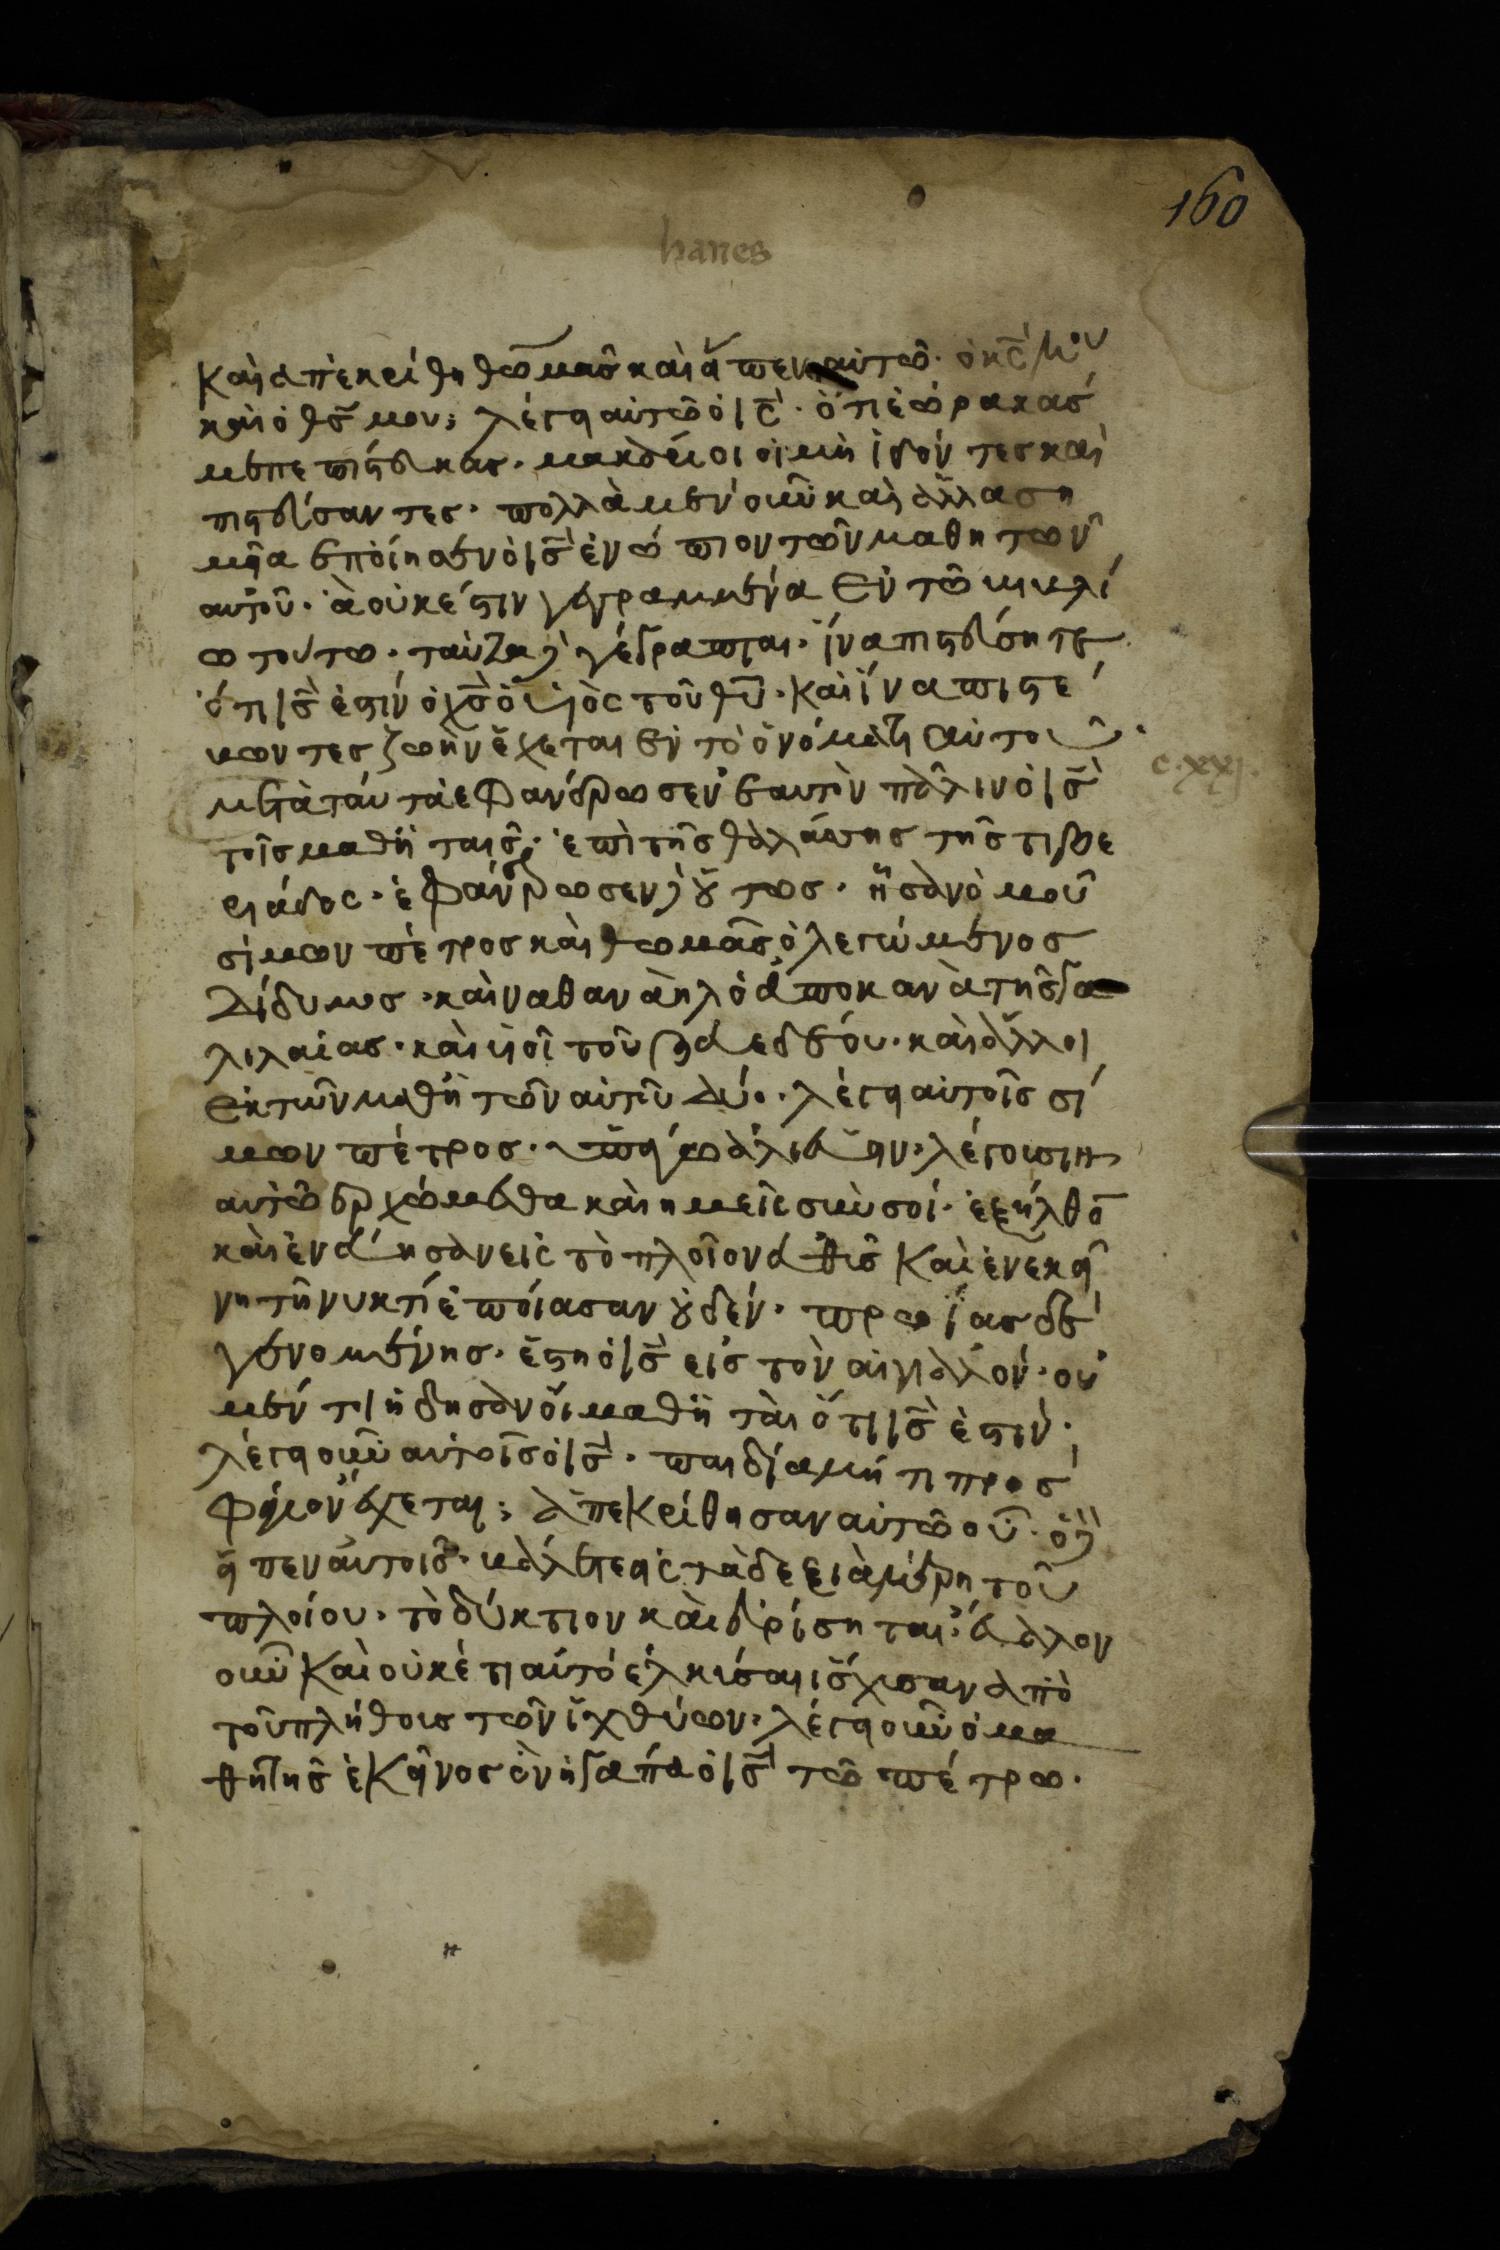 160
hanes
Καὶ ἀπεκρίθη θωμᾶς καὶ εἶπεν αὐτῶ· ὁ κς̅ μου
καὶ ὁ θς̅ μου; λέγει αὐτῶ ὁ ις̅· ὅτι ἑώρακας
με πεπίστευκας· μακάριοι οἱ μὴ ἰδόντες καὶ
πιστεύσαντες· πολλὰ μὲν οὖν καὶ ἄλλα ση
μεῖα ἐποίησεν ὁ ις̅ ἐνώπιον τῶν μαθητῶν
αὐτοῦ· ἃ οὐκ ἔστιν γεγραμμένα ἐν τῶ βιβλί
ω τούτω· ταῦτα δὲ γέγραπται· ἵνα πιστεύσητε
ὅτι ις̅ ἐστὶν ὁ χς̅ ὁ υἱὸς τοῦ θυ̅· καὶ ἵνα πιστε
βων τες ζωὴν ἔχεται ἐν τὸ ὀνόματι αὐτοῦ·
c. xxj.
μετὰ ταῦτα ἐφανέρωσεν ἑαυτὸν πάλιν ὁ ις̅
τοῖς μαθηταις· ἐπὶ τῆς θαλάσσης τῆς τιβε
ριάδος· ἐφανέρωσεν δὲ οὕτως· ἦσαν ὁμοῦ
σίμων πέτρος καὶ θωμᾶς ὁ λεγώμενος
Δίδυμος· καὶ ναθαναὴλ ὁ ἀπο κανὰ τῆς γα
λιλαίας· καὶ υἱοῖ τοῦ ζεβεδέου· καὶ ἄλλοι
ἐκ τῶν μαθητῶν αὐτοῦ Δύο· λέγει αὐτοῖς σί
μων πέτρος· ὑπάγω ἁλιεύειν· λέγουσιν
αὐτῶ ἐρχώμεθα καὶ ημεῖς σὺν σοί· ἐξήλθο
καὶ ἐνέβησαν εἰς τὸ πλοῖον εὐθὺς καὶ ἐν εκεί
νη τῆ νυκτί ἐπίασαν οὐδέν· πρωίας δὲ
γενομένης· ἔστη ὁ ις̅ εἰς τὸν αἰγιαλόν· οὐ
μέν τοι ἤδησαν οἱ μαθηταὶ ὅτι ις̅ ἐστιν·
λέγει οὖν αὐτοῖς ὁ ις̅· παιδία μή τι προσ
φάγιον ἔχεται; ἀπεκρίθησαν αὐτῶ οὔ· ὁ δὲ
εἶπεν αὐτοις· βάλετε εἰς τὰ δεξιὰ μέρη τοῦ
πλοίου· τὸ δύκτιον καὶ εὑρίσηται· ἔβαλον
οὖν καὶ οὐκέτι αὐτό ἑλκύσαι ἴσχυσαν ἀπὸ
τοῦ πλήθους τῶν ἰχθύων· λέγει οὖν ὁ μα
θητὴς ἐκεῖνος ὃν ἠγάπα ὁ ις̅ τῶ πέτρω·